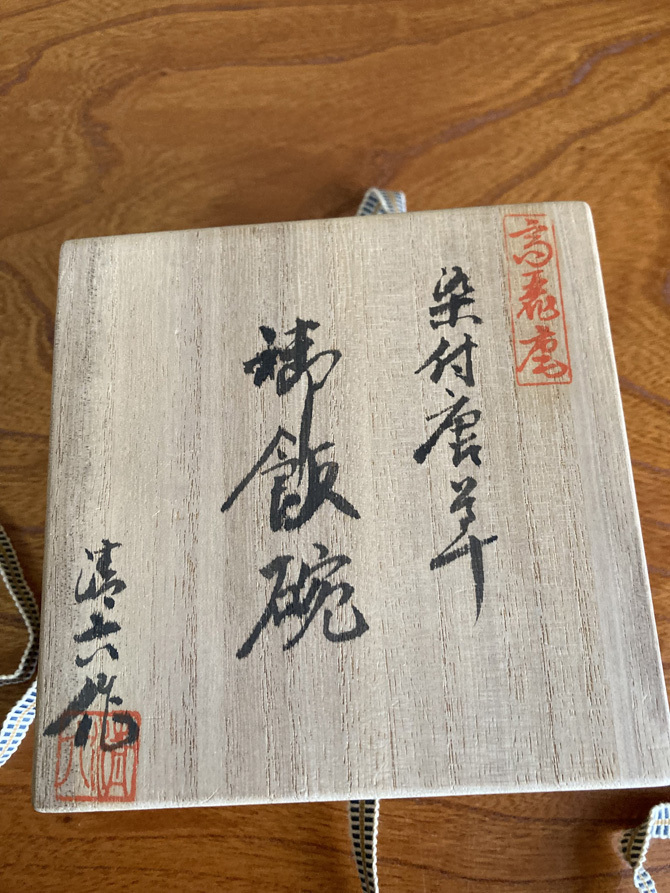 高麗庵
染付唐草
御飯碗
清六作
清六